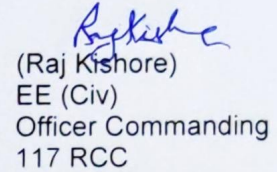 Raj Kishore
(Raj Kishore)
EE (Civ)
Officer Commanding
117 RCC